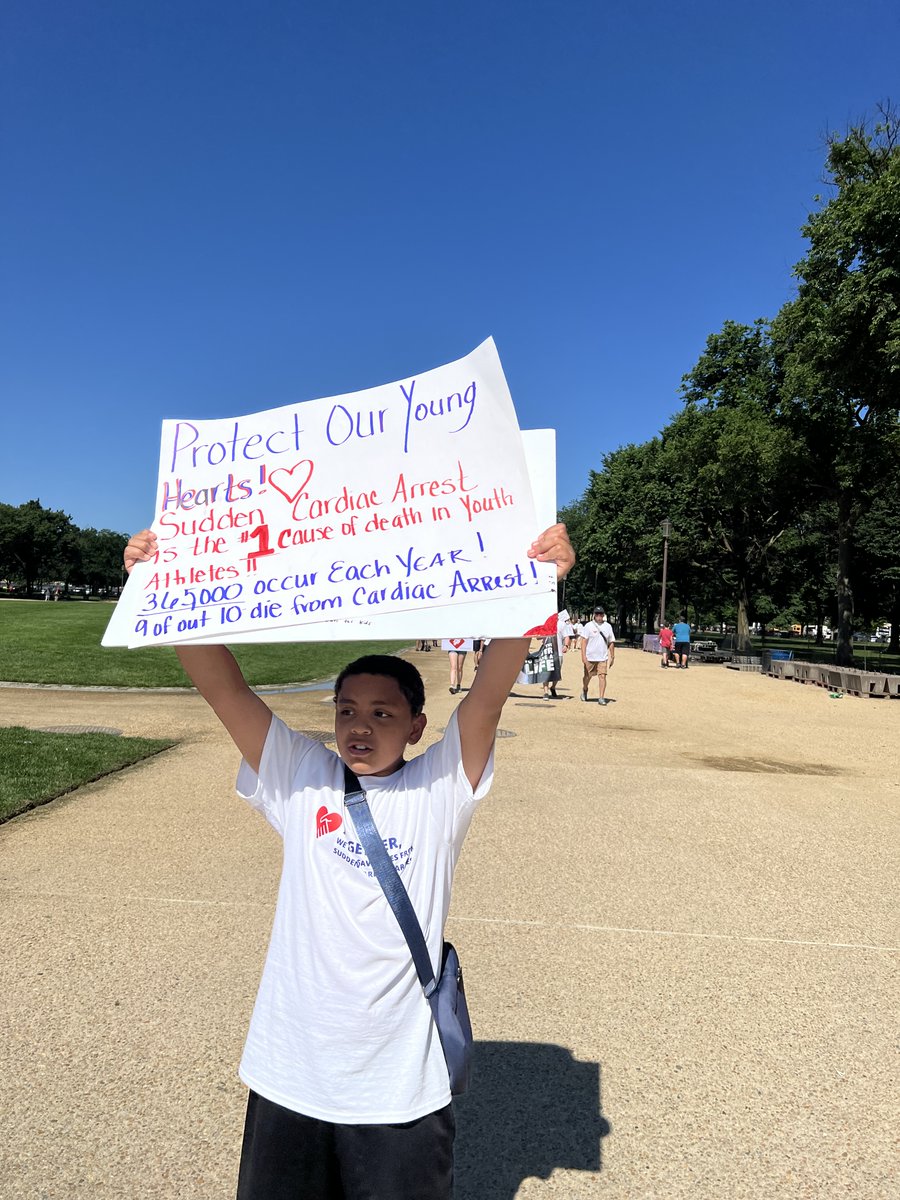 Protect Our Young
Hearts!
Sudden Cardiac Arrest
is the #1 cause of death in Youth
Athletes!!
365000 occur Each Year!
9 of out 10 die from Cardiac Arrest!
for kids
WE
SUDDEN
LIFE